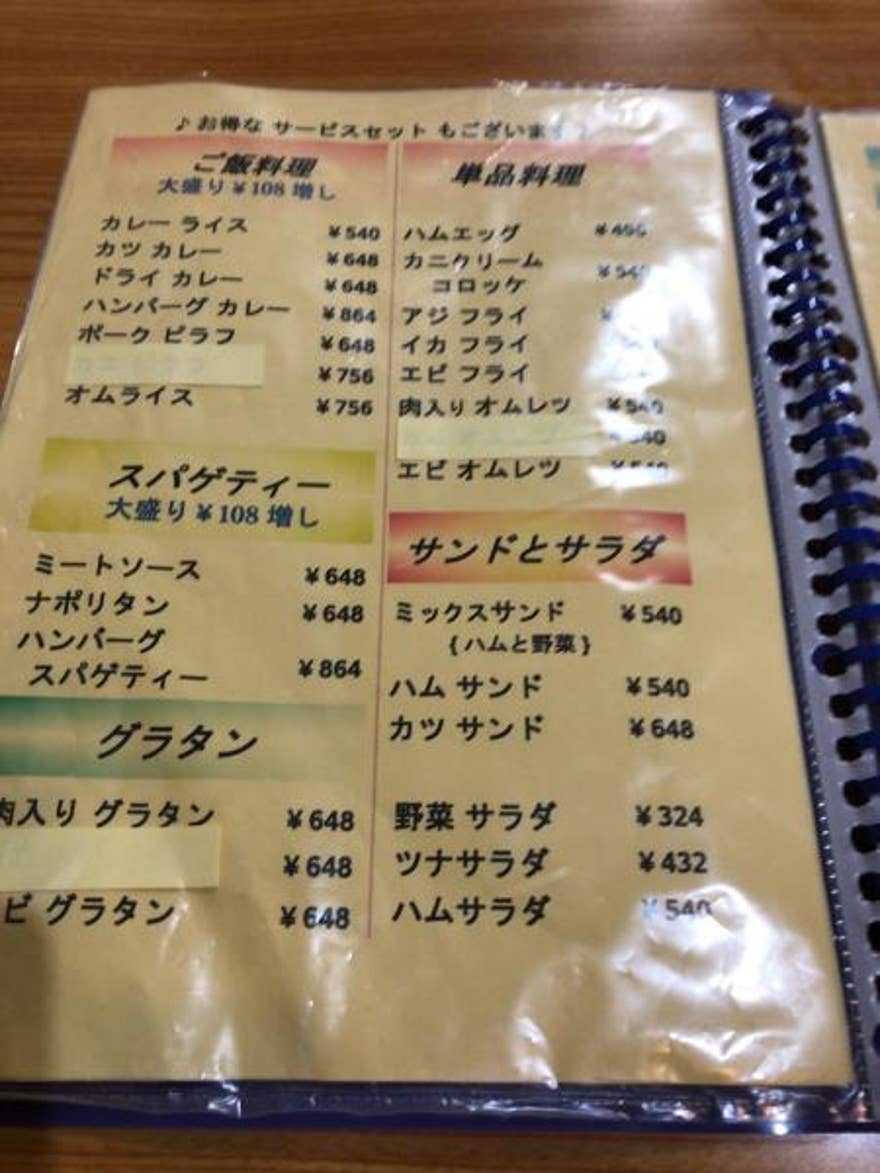 ♪ お得な サービスセット もございます
ご飯料理
大盛り ¥108 増し
カレー ライス ¥540
カツ カレー ¥648
ドライ カレー ¥648
ハンバーグ カレー ¥864
ポーク ピラフ ¥648
¥756
オムライス ¥756
スパゲティー
大盛り ¥108 増し
ミートソース ¥648
ナポリタン ¥648
ハンバーグ
スパゲティー ¥864
グラタン
肉入り グラタン ¥648
¥648
ビ グラタン ¥648
単品料理
ハムエッグ
カニクリーム
コロッケ ¥540
アジ フライ
イカ フライ
エビ フライ
肉入り オムレツ ¥540
エビ オムレツ ¥540
サンドとサラダ
ミックスサンド ¥540
{ハムと野菜}
ハム サンド ¥540
カツ サンド ¥648
野菜 サラダ ¥324
ツナサラダ ¥432
ハムサラダ ¥540